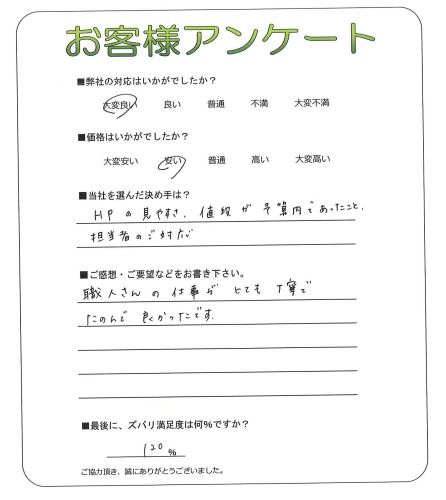 お客様アンケート
■弊社の対応はいかがでしたか?
大変良い 良い 普通 不満 大変不満
■価格はいかがでしたか?
大変安い 安い 普通 高い 大変高い
■当社を選んだ決め手は?
HPの見やすさ、値段が予算内であったこと、
担当者のご対応
■ご感想・ご要望などをお書き下さい。
職人さんの仕事がとても丁寧で
たのんで良かったです。
■最後に、ズバリ満足度は何%ですか?
120%
ご協力頂き、誠にありがとうございました。